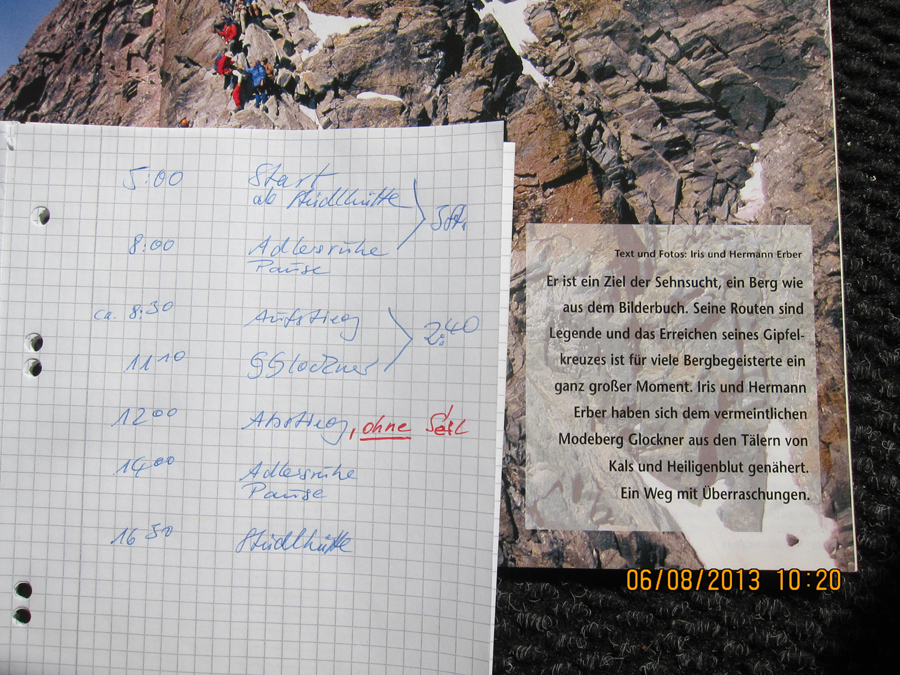 5:00 Start
ab Stüdlhütte
3 Std.
8:00 Adlersruhe
Pause
ca. 8:30 Aufstieg
2:40
11 10 GGlockner
12 00 Abstieg, ohne Seil
14 00 Adlersruhe
Pause
16 30 Stüdlhütte
Text und Fotos: Iris und Hermann Erber
Er ist ein Ziel der Sehnsucht, ein Berg wie
aus dem Bilderbuch. Seine Routen sind
Legende und das Erreichen seines Gipfel-
kreuzes ist für viele Bergbegeisterte ein
ganz großer Moment. Iris und Hermann
Erber haben sich dem vermeintlichen
Modeberg Glockner aus den Tälern von
Kals und Heiligenblut genähert.
Ein Weg mit Überraschungen.
06/08/2013 10:20